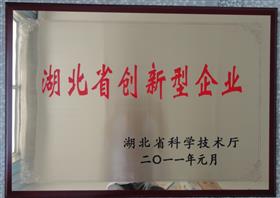 湖北省创新型企业
湖北省科学技术厅
二〇一一年元月